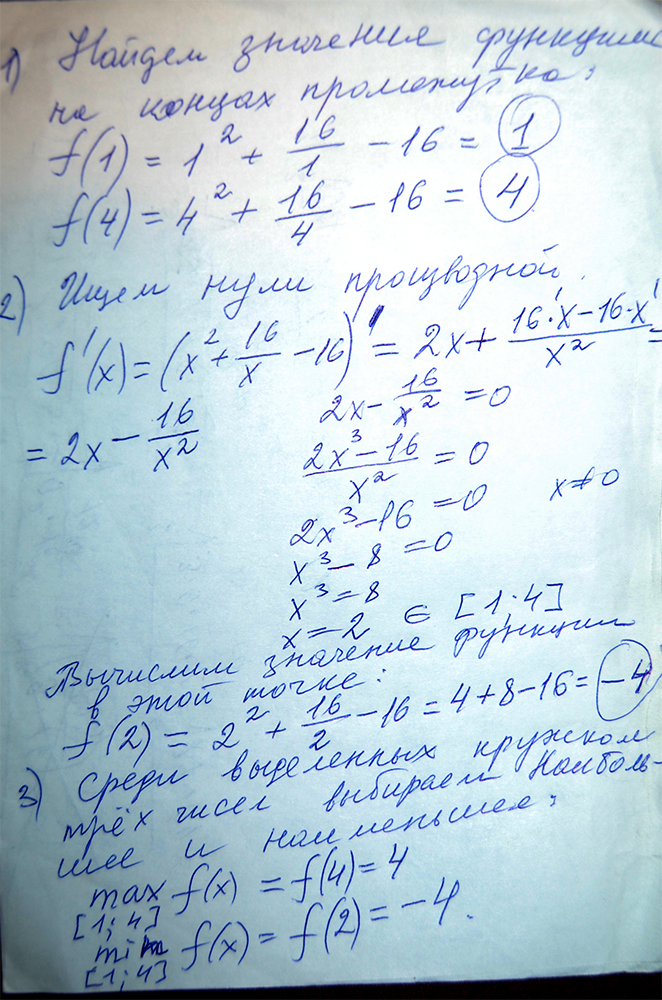 1) Найдем значения функции
на концах промежутка:
f(1) = 1² + 16/1 - 16 = 1
f(4) = 4² + 16/4 - 16 = 4
2) Ищем нули производной
f'(x) = (x² + 16/x - 16)' = 2x + (16'·x - 16·x')/x² =
= 2x - 16/x²
2x - 16/x² = 0
(2x³ - 16)/x² = 0
2x³ - 16 = 0 x ≠ 0
x³ - 8 = 0
x³ = 8
x = 2 ∈ [1; 4]
Вычислим значение функции
в этой точке:
f(2) = 2² + 16/2 - 16 = 4 + 8 - 16 = -4
3) Среди выделенных кружком
трёх чисел выбираем наиболь-
шее и наименьшее:
max f(x) = f(4) = 4
[1; 4]
min f(x) = f(2) = -4.
[1; 4]